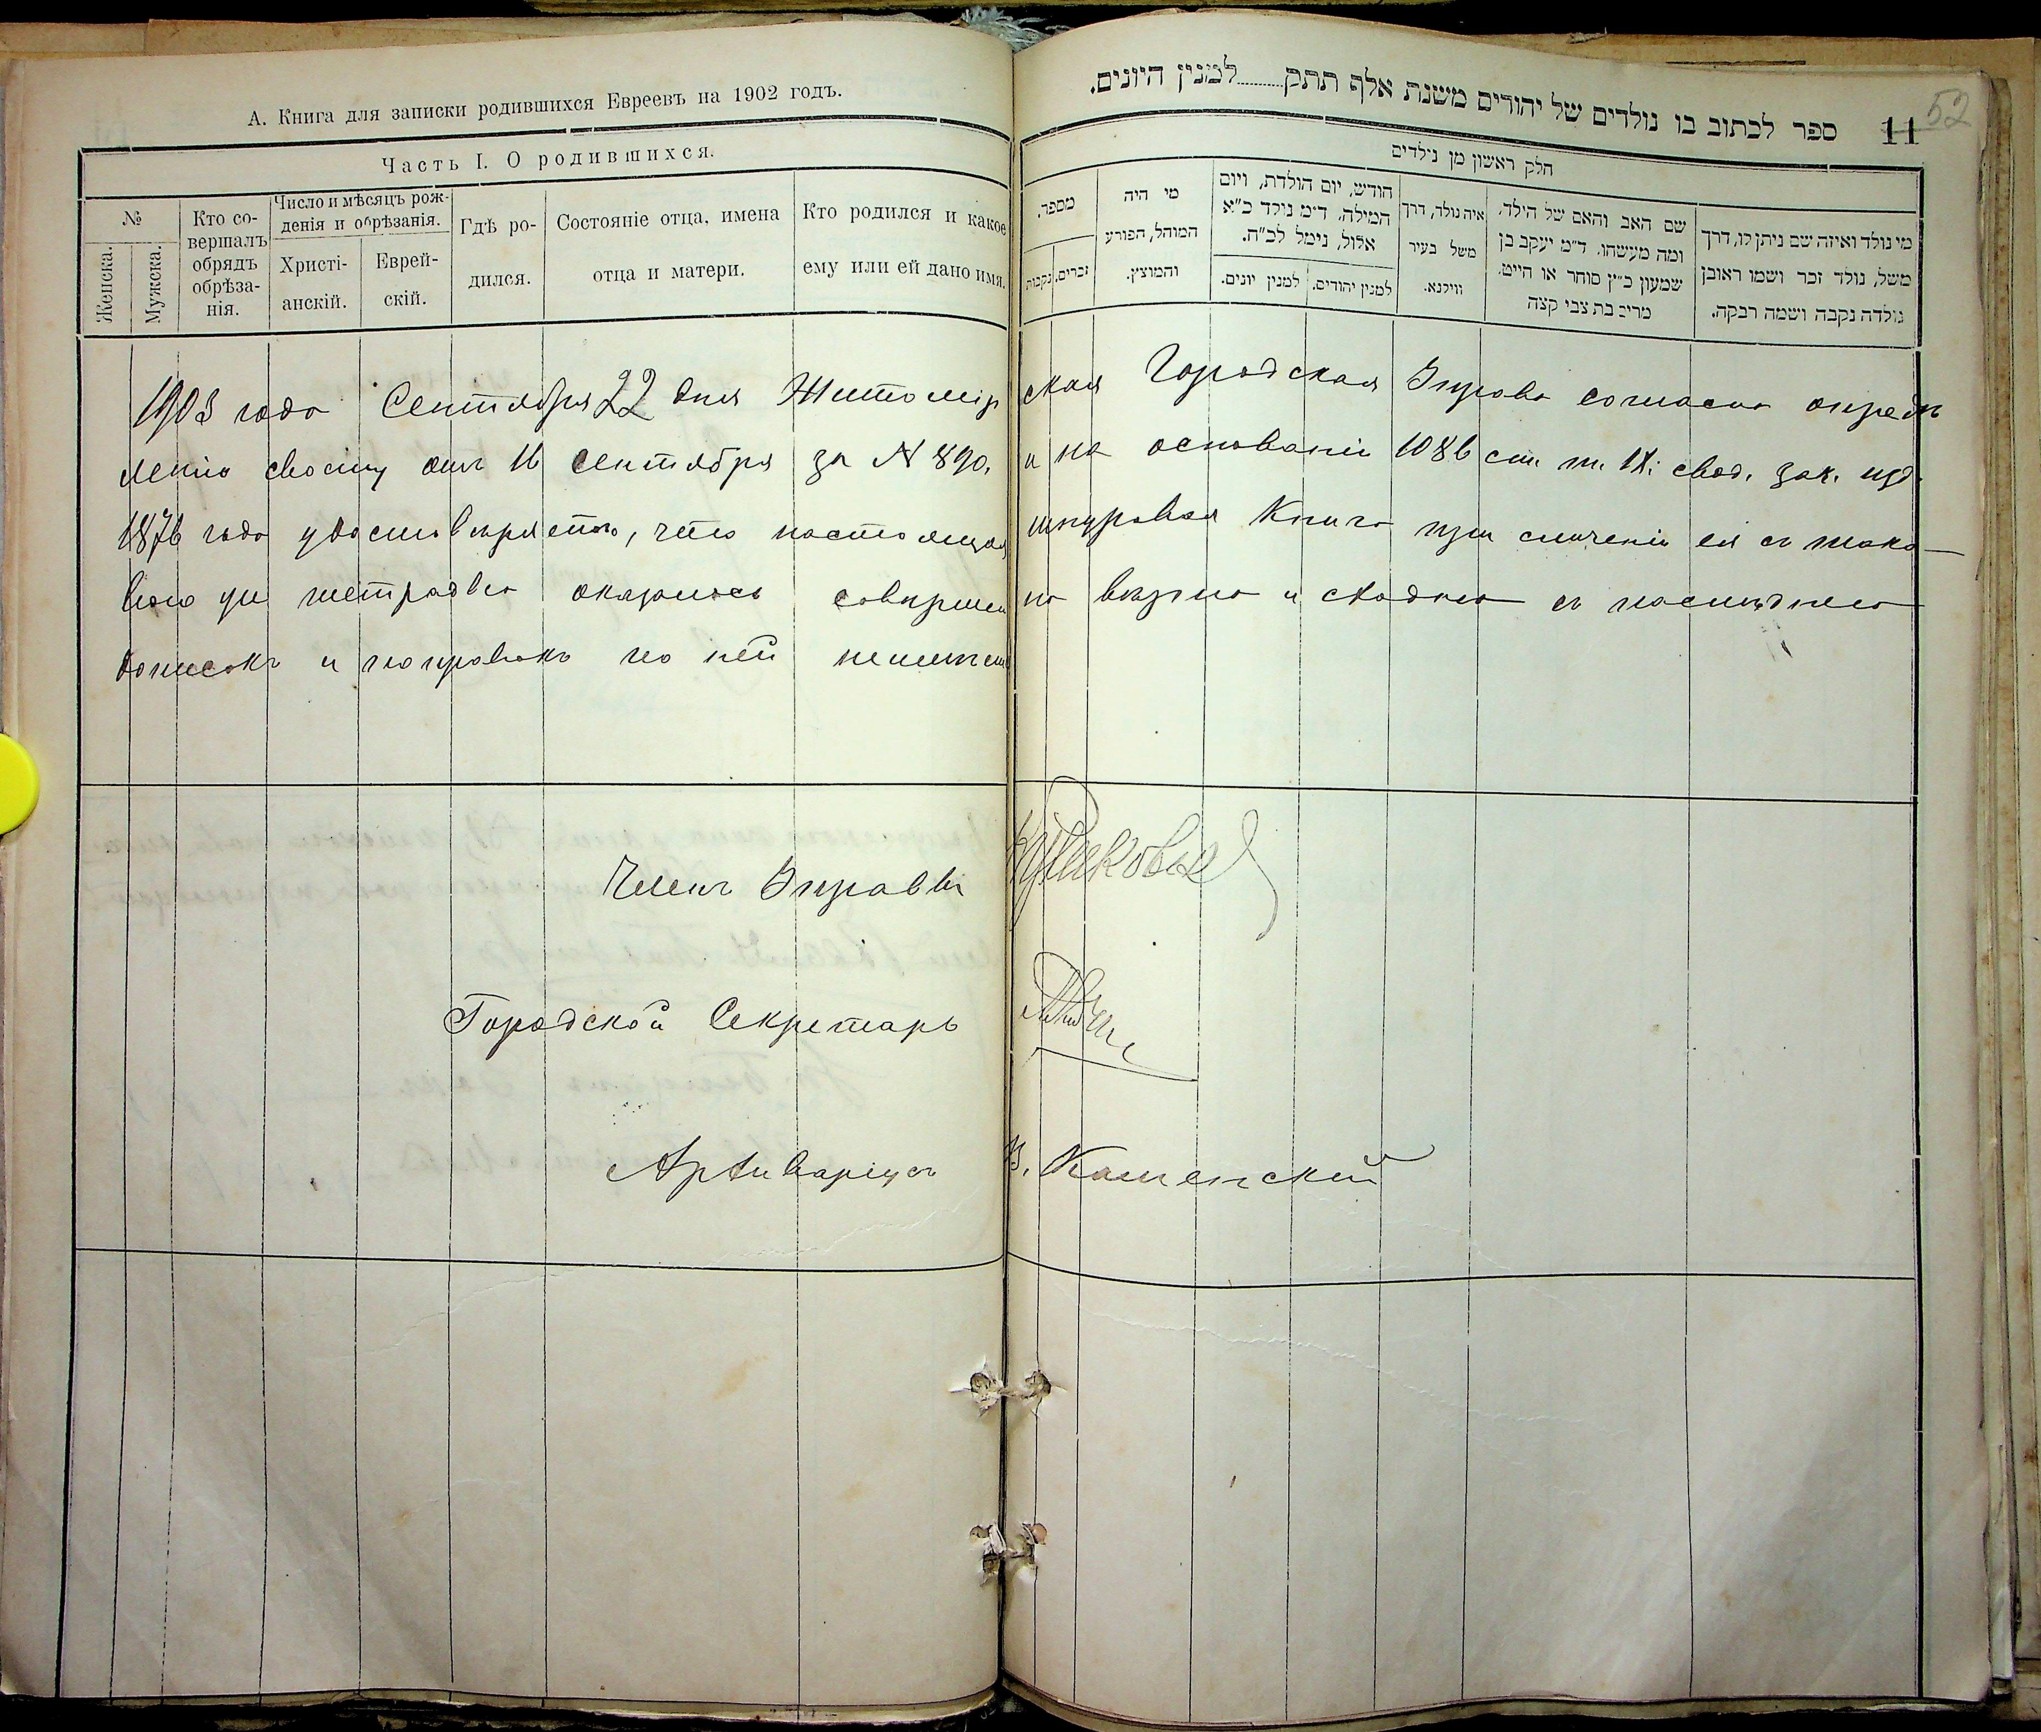 А. Книга для записки родившихся Евреевъ на 1902 годъ.
Часть I. О родившихся.
№
Женска.
Мужска.
Кто совершалъ обрядъ обрѣзанія.
Число и мѣсяцъ рожденія и обрѣзанія.
Христіанскій.
Еврейскій.
Гдѣ родился.
Состояніе отца, имена отца и матери.
Кто родился и какое ему или ей дано имя.
52
11
ספר לכתוב בו נולדים של יהודים משנת אלף תתק........למנין היונים.
חלק ראשון מן נולדים
מספר.
זכרים.
נקבות
מי היה
המוהל, הפורע
והמוצץ.
חודש, יום הולדת, ויום
המילה. ד״מ נולד כ״א
אלול, נימל לכ״ח.
למנין יהודים.
למנין יונים.
איה נולד, דרך
משל בעיר
ווילנא.
שם האב והאם של הילד,
ומה מעשהו. ד״מ יעקב בן
שמעון כ״ץ סוחר או חייט,
מרים בת צבי קצה
מי נולד ואיזה שם ניתן לו, דרך
משל, נולד זכר ושמו ראובן
נולדה נקבה ושמה רבקה.
1903 года Сентября 22 дня Житомірская Городская Управа согласно опредѣ
ленію своему отъ 16 Сентября за № 890, и на основаніи 1086 ст. т. IX. свод. зак. изд.
1876 года удостовѣряетъ, что настоящая шнуровая Книга при сличеніи ея съ тако-
вою же тетрадью оказалось совершенно вѣрно и сходно съ послѣднею
дописокъ и поправокъ по ней неимѣется
Членъ Управы
Городской Секретарь
Архиваріусъ В. Каменскій